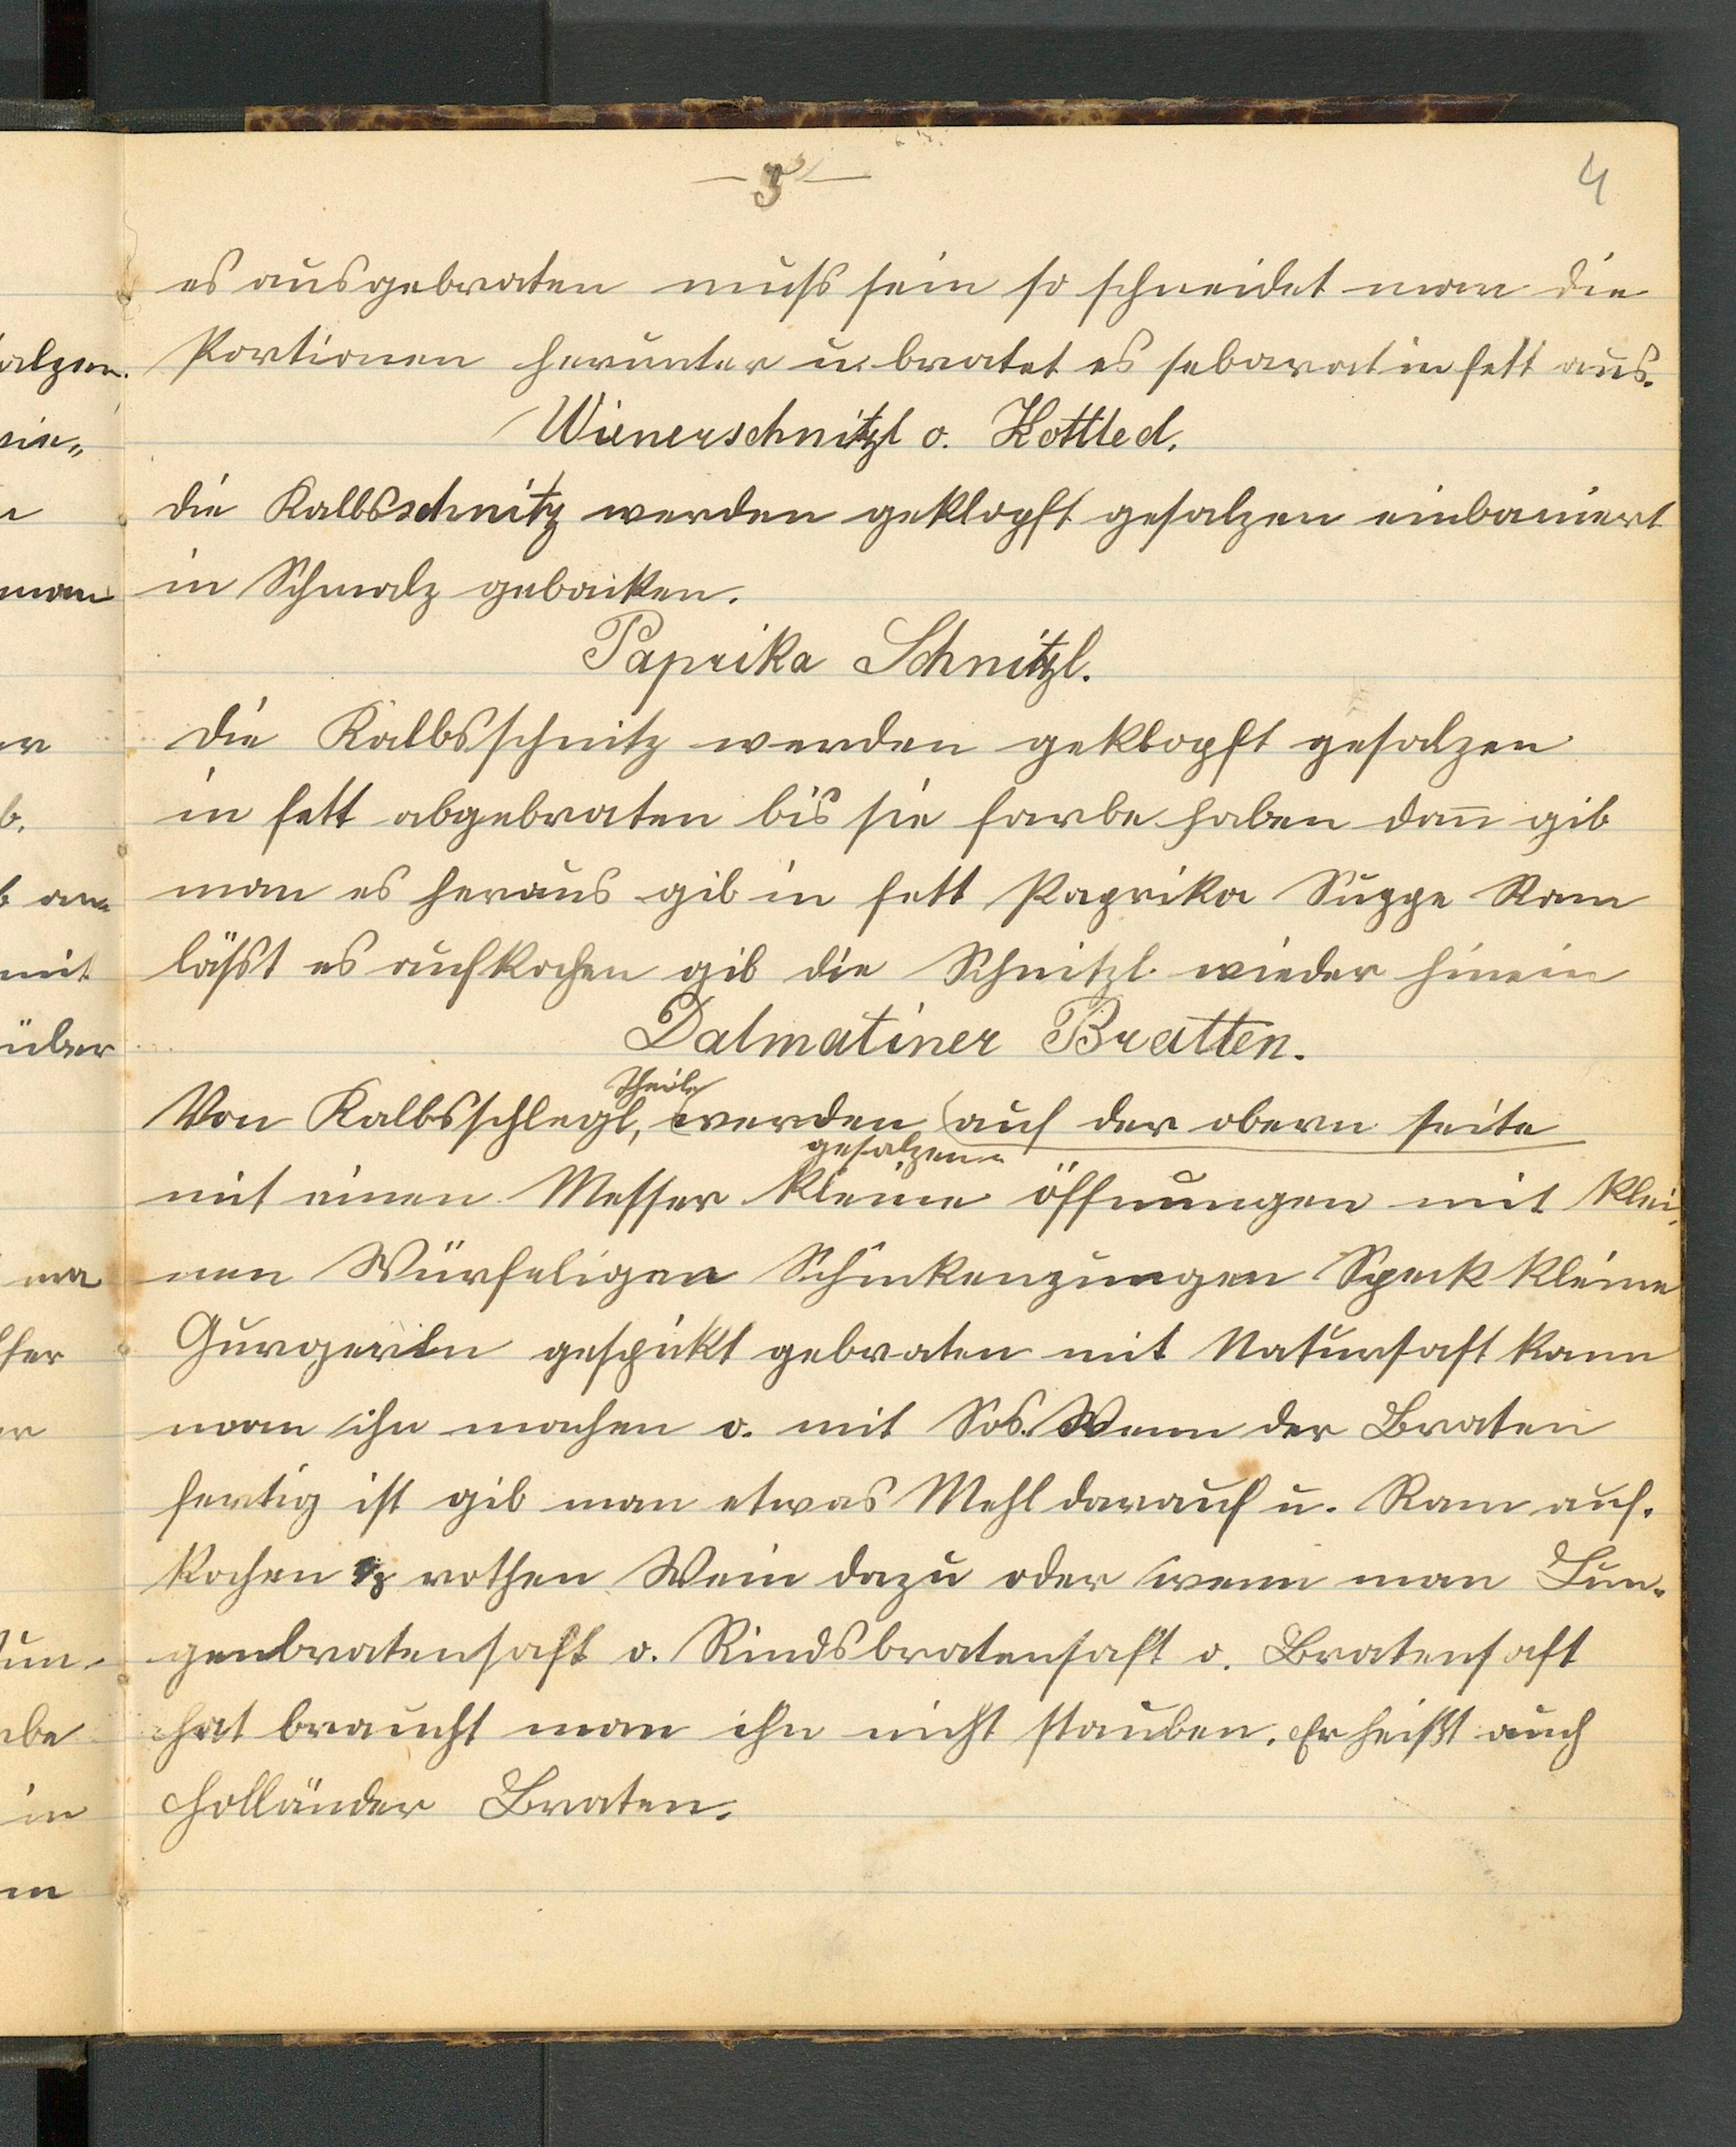 — 5 —
4
es ausgebraten muß sein so schneidet man die
Portionen herunter u. bratet es sebarat in fett aus.
Wienerschnitzl o. Kottled.
die Kalbsschnitz werden geklopft gesalzen einbaniert
in Schmalz gebacken.
Paprika Schnitzl.
die Kalbsschnitz werden geklopft gesalzen
in fett abgebraten bis sie farbe haben dann gib
man es heraus gib in fett Paprika Suppe Ram
läßt es aufkochen gib die Schnitzl wieder hinein
Dalmatiner Bratten.
Theile
Von Kalbsschlegl, werden auf der obern seite
gesalzen
mit einen Messer kleine öffnungen mit klei,
nen Würfeligen Schinkenzungen Speck kleine
Gurgerln gespickt gebraten mit Natursaft kann
man ihn machen o. mit Sos. Wenn der Braten
fertig ist gib man etwas Mehl darauf u. Ram auf.
kochen rothen Wein dazu oder wenn man Lun-
genbratensaft o. Rindsbratensaft o. Bratensaft
hat braucht man ihn nicht stauben. Er heißt auch
Holländer Braten.